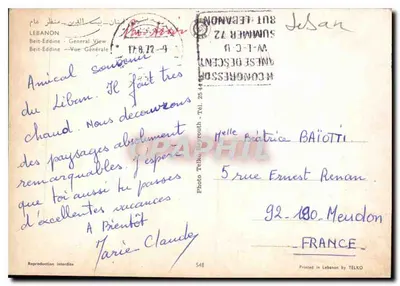 لبنان - بيت الدين - منظر عام
LEBANON
Beit-Eddine - General View
Beit-Eddine - Vue Générale
17.8.72
Liban
II CONGRESSO
W.L.C.U
SUMMER 72
BUT LEBANON
Amical souvenir
du Liban. Il fait très
chaud. Nous découvrons
des paysages absolument
remarquables. J'espère
que toi aussi tu passes
d'excellentes vacances
A Bientôt
Marie-Claude
Melle Béatrice BAÏOTTI
5 rue Ernest Renan.
92-190 Meudon
FRANCE
Reproduction interdite
548
Printed in Lebanon by TELKO
PRO CARTE POSTALE